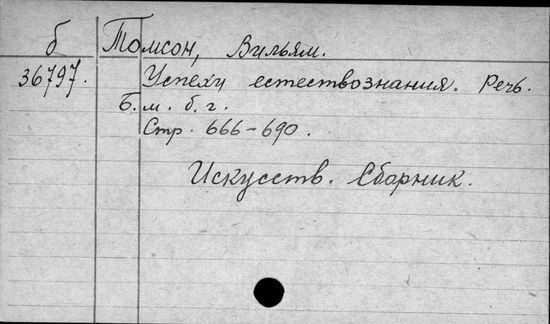 б Томсон, Вильям.
36797. Успехи естествознания. Речь.
Б. м. б. г.
Стр. 666-690.
Искусств. Сборник.